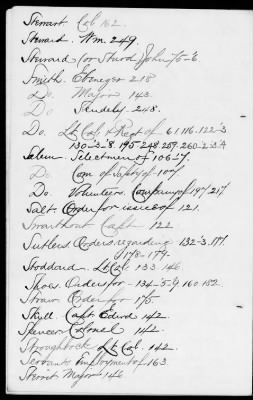 Stewart Col 162
Steward. Wm. 249.
Steward (or Sturd) John 75-6
Smith. Ebenezer 218
Do. Major 143.
Do Sandely 248.
Do. Lt Col & Regt of 61.116.122-3
130-3-8. 195-248.259-260-2-3-4
Salem. Selectmen of 106-7.
Do. Com of Safety of 107
Do. Volunteers. Company of 197.217
Salt. Order for issue of 121.
Swarthout Capt 122
Sutlers Orders regarding 132-3. 177.
178-179.
Stoddard. Lt Col 133-146.
Shoes. Orders for - 134-5-9. 160.182.
Straw Order for 175
Skyll Capt Edwd 142.
Spencer Colonel 142.
Lt. Col. 142.
Servants Employment of 163.
Major 146